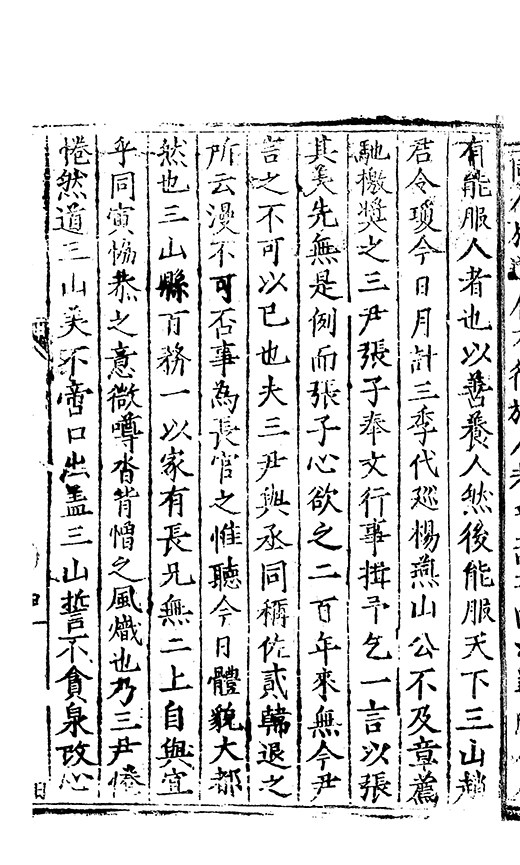 有能服人者也以善養人然後能服天下三山趙
君令瓊今日月計三季代廵楊燕山公不及章薦
馳檄奬之三尹張子奉文行事揖予乞一言以張
其美先無是例而張子心欲之二百年來無今尹
言之不可以已也夫三尹與丞同稱佐貳韓退之
所云漫不可否事為長官之惟聽今日體貌大都
然也三山縣百務一以家有長兄無二上自與宜
乎同寅恊恭之意微噂沓背憎之風熾也乃三尹惓
惓然道三山美不啻口出盖三山誓不貪泉攻心